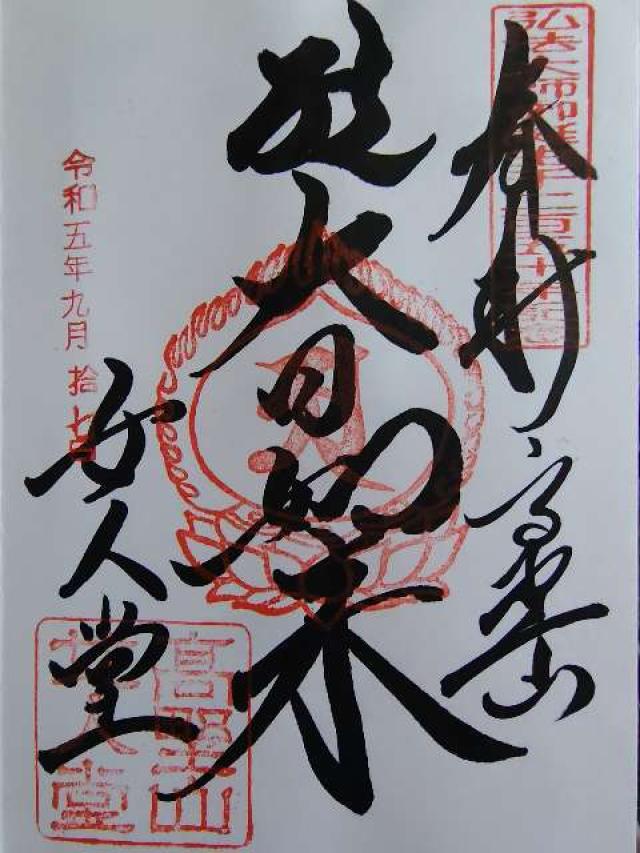 弘法大師御誕生千二百五十年記念
奉拝
高野山
大日如来
女人堂
令和五年九月拾七日
高野山
女人堂